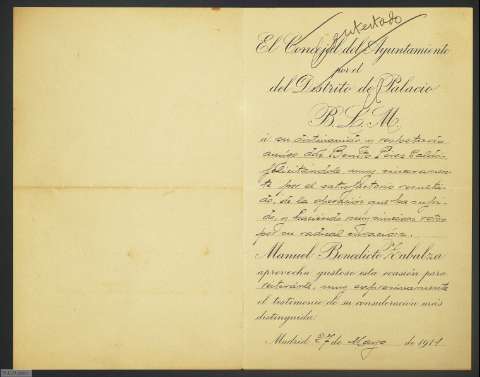 contestado
El Concejal del Ayuntamiento
por el
del Distrito de Palacio
B. L. M.
á su distinguido y respetable
amigo don Benito Perez Galdós,
felicitándole muy sinceramen-
te por el satisfactorio resulta-
do, de la operación que ha sufri-
do, y haciendo muy sinceros votos
por su radical curación.
Manuel Benedicto Zabalza
aprovecha gustoso esta ocasión para
reiterarle, muy expresivamente
el testimonio de su consideración más
distinguida.
Madrid 27 de Mayo de 1911